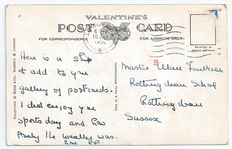 VALENTINE'S
POST CARD
FOR CORRESPONDENCE
FOR ADDRESS ONLY
Here is a ship
to add to your
gallery of postcards.
I did enjoy your
sports day and
lovely the weather was.
Master
Rottingdean School
Rottingdean
Sussex